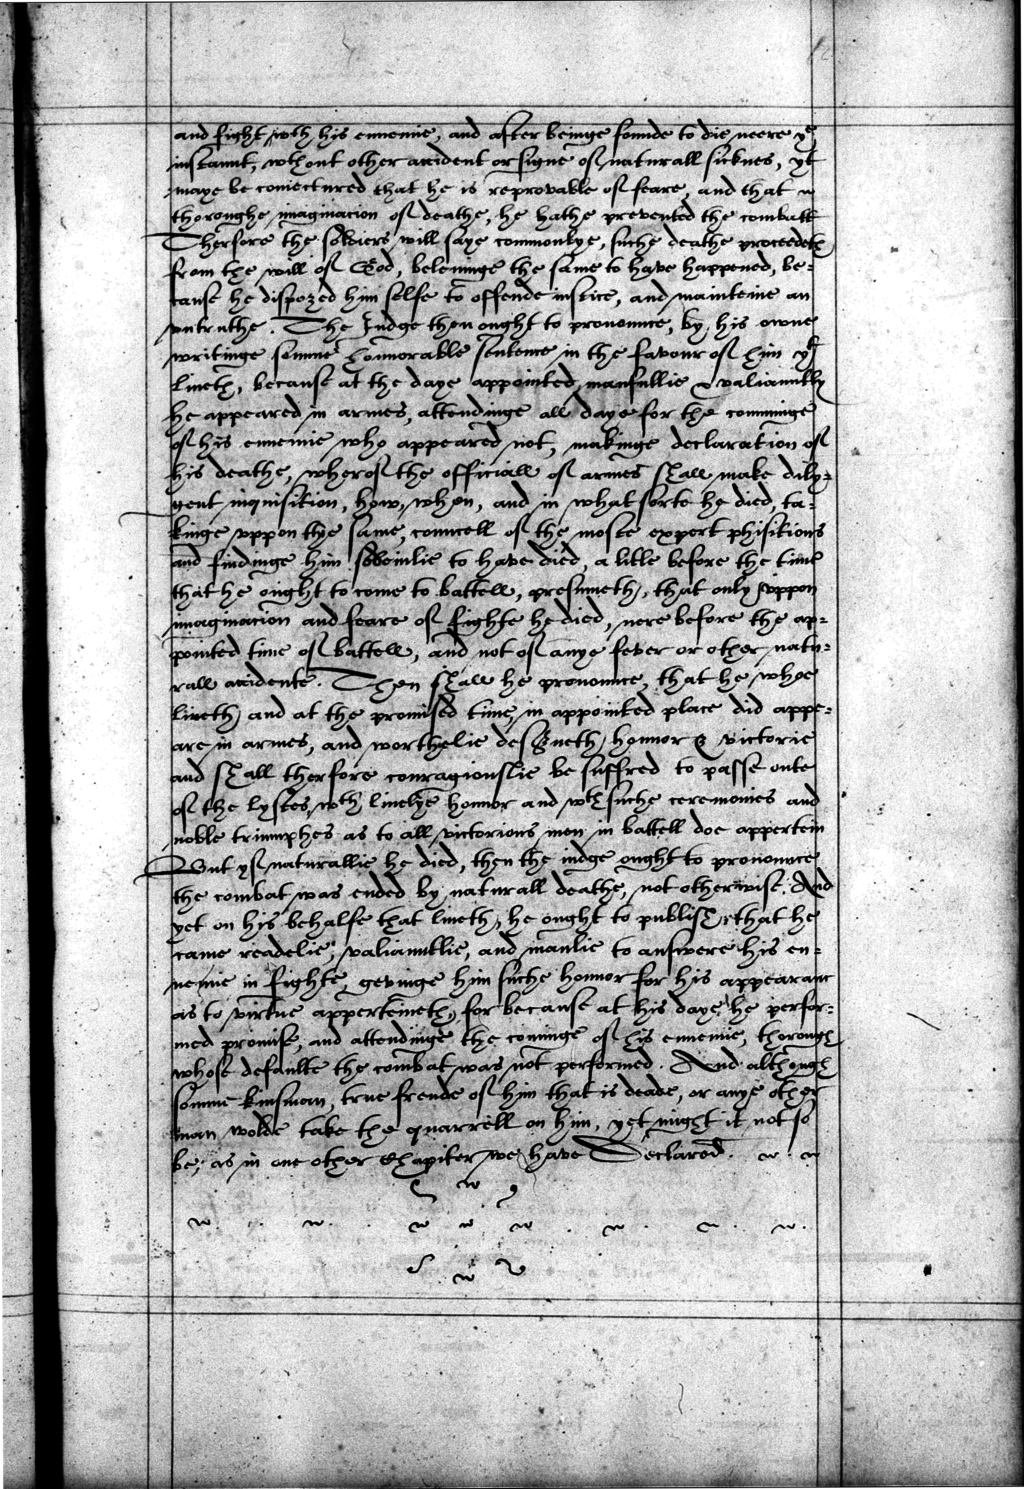 and fight wth his ennemie, and after beinge founde to die neere ye
instannt, wthout other accident or signe of naturall sicknes, yt
maye be coniectured that he is reprovable of feare, and that
thoroughe imaginacion of deathe, he hathe prevented the combatt
Therfore the soldiers will saye commonlye, suche deathe proceedeth
from the will of God, beleuinge the same to have happened, be-
cause he disposed him selfe to offende iustice, and mainteine an
untruthe. The Judge then ought to pronounce, by his owne
writinge somme honnorable sentence in the favour of him yt
liueth, because at the daye appointed, manfullie & valiauntly
he appeared in armes, attendinge all daye for the comminge
of his ennemie who appeared not, makinge declaration of
his deathe, wherof the officiall of armes shall make dily-
gent inquisition, how, when, and in what sorte he died, ta-
kinge uppon the same, councell of the moste expert phisitions
and findinge him sodeinlie to have died, a litle before the time
that he ought to come to battell, presumeth, that only uppon
imaginacion and feare of fighte he died, nere before the ap-
pointed time of battell, and not of anye fever or other natu-
rall accidente. Then shall he pronounce, that he whoe
liveth, and at the promised time, in appointed place did appe-
are in armes, and worthelie deserueth, honnor & victorie
and shall therfore couragiouslie be suffred to passe oute
of the lystes, wth liuelye honnor and wth suche ceremonies and
noble triumphes as to all victorious men in battell doe appertein
But yf naturallie he died, then the iudge ought to pronounce
the combat was ended by naturall deathe, not otherwise. And
yet on his behalfe that liueth, he ought to publish, that he
came readelie, valiauntlie, and manlie to answere his en-
nemie in fighte, gevinge him suche honnor for his appearanc
as to virtue apperteineth, for because at his daye he perfor-
med promise, and attendinge the cominge of his ennemie, thorough
whose defaulte the combat was not performed. And although
somme kinsman, true frende of him that is deade, or anye other
man wolde take the quarrell on him, yet might it not so
be, as in one other Chapiter we have Declared.